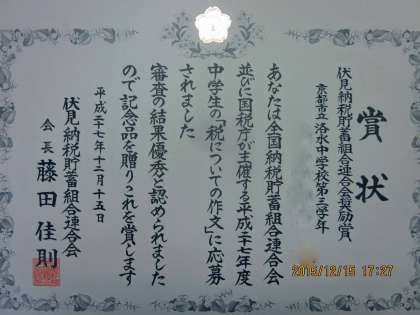 賞状
伏見納税貯蓄組合連合会奨励賞
京都市立洛水中学校第三学年
あなたは全国納税貯蓄組合連合会
並びに国税庁が主催する平成二十七年度
中学生の「税についての作文」に応募
されました
審査の結果優秀と認められました
ので記念品を贈りこれを賞します
平成二十七年十二月十五日
伏見納税貯蓄組合連合会
会長 藤田佳則
2015/12/15 17:27